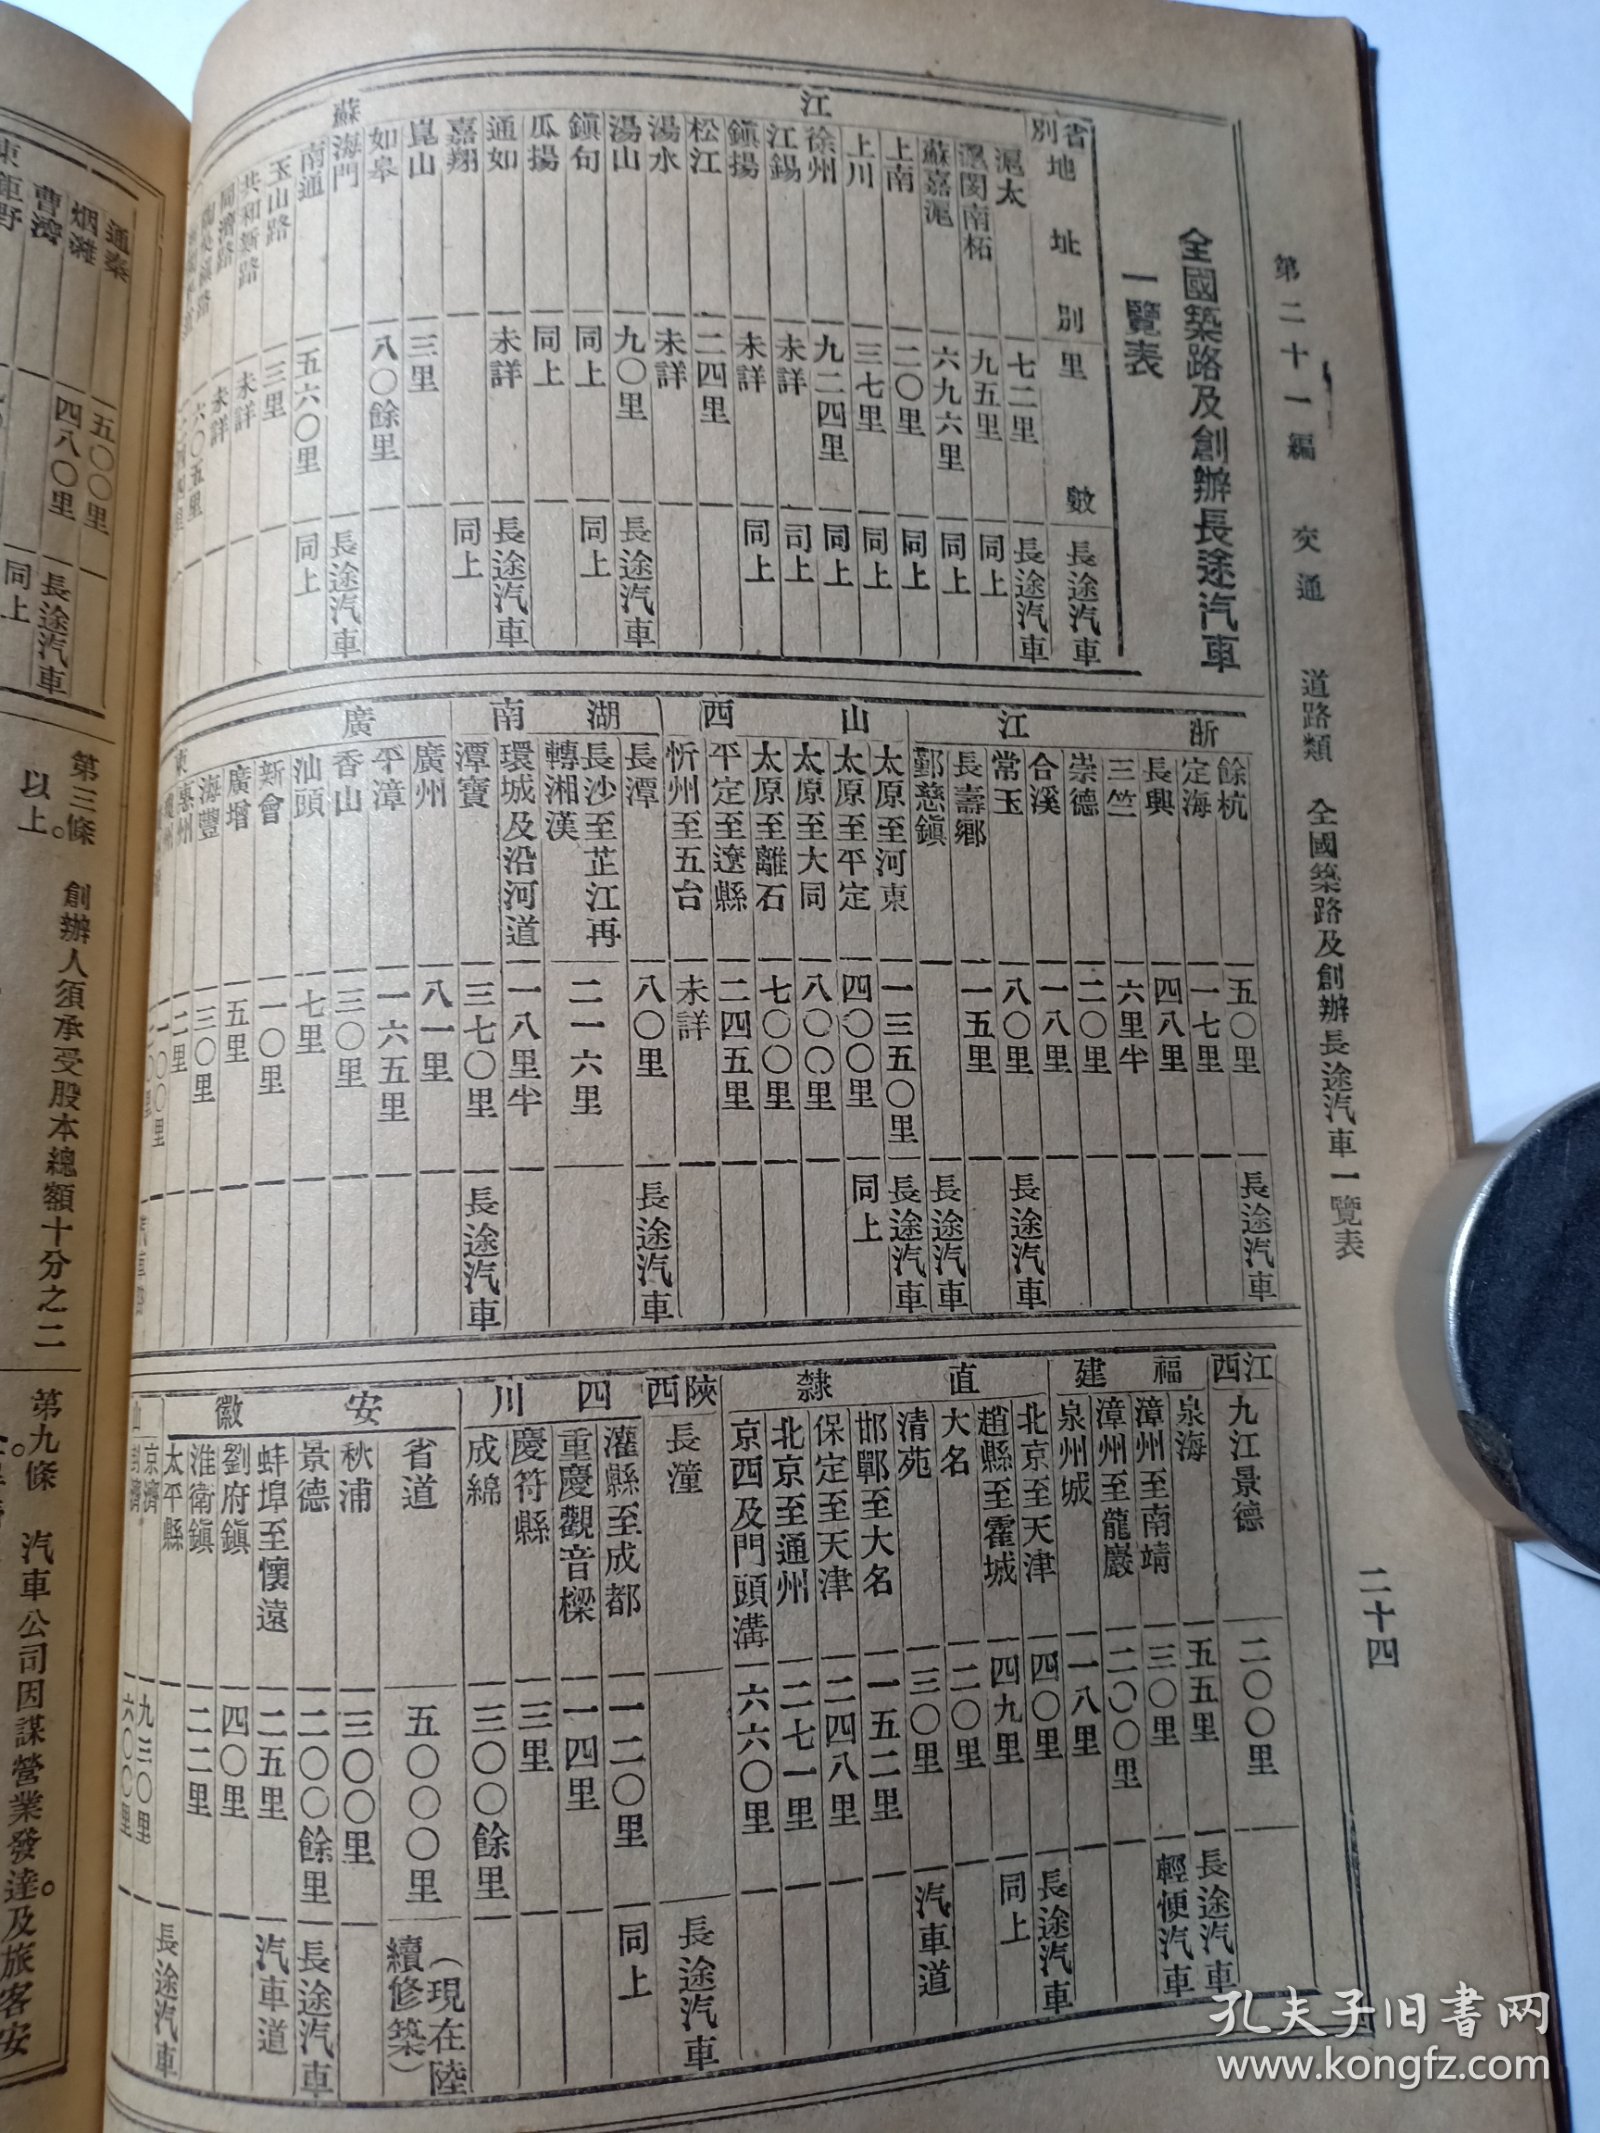 第二十一編　交通　道路類　全國築路及創辦長途汽車一覽表　二十四
全國築路及創辦長途汽車
一覽表
省別　地址別　里數　長途汽車
江蘇
滬太　七二里　長途汽車
滬閔南柘　九五里　同上
蘇嘉滬　六九六里　同上
上南　二〇里　同上
上川　三七里　同上
徐州　九二四里　同上
江錫　未詳　同上
鎭揚　未詳　同上
松江　二四里　一
湯水　未詳　一
湯山　九〇里　長途汽車
鎭句　同上　同上
瓜揚　同上　一
通如　未詳　長途汽車
嘉翔　一　同上
崑山　三里　一
如皋　八〇餘里　一
海門　一　長途汽車
南通　五六〇里　同上
玉山路　三里　一
共和新路　未詳　一
同濟路　未詳　一
浙江
餘杭　五〇里　長途汽車
定海　一七里　一
長興　四八里　一
三竺　六里半　一
崇德　二〇里　一
合溪　一八里　一
常玉　八〇里　長途汽車
長壽鄉　一五里　一
鄞慈鎭　一　長途汽車
山西
太原至河東　一三五〇里　長途汽車
太原至平定　四〇〇里　同上
太原至大同　八〇〇里　一
太原至離石　七〇〇里　一
平定至遼縣　二四五里　一
忻州至五台　未詳　一
湖南
長潭　八〇里　長途汽車
長沙至芷江再
轉湘漢　二一六里　一
環城及沿河道　一八里半　一
潭寶　三七〇里　長途汽車
廣東
廣州　八一里　一
平漳　一六五里　一
香山　三〇里　一
汕頭　七里　一
新會　一〇里　一
廣增　五里　一
海豐　三〇里　一
惠州　二里　一
江西
九江景德　二〇〇里　一
福建
泉海　五五里　長途汽車
漳州至南靖　三〇里　輕便汽車
漳州至龍巖　二〇〇里　一
泉州城　一八里　一
直隸
北京至天津　四〇里　長途汽車
趙縣至霍城　四九里　同上
大名　二〇里　一
清苑　三〇里　汽車道
邯鄲至大名　一五二里　一
保定至天津　二四八里　一
北京至通州　二七一里　一
京西及門頭溝　六六〇里　一
陝西
長潼　一　長途汽車
四川
灌縣至成都　一二〇里　同上
重慶觀音樑　一四里　一
慶符縣　三里　一
成綿　三〇〇餘里　一
安徽
省道　五〇〇〇里　（現在陸續修築）
秋浦　三〇〇里　一
景德　二〇〇餘里　長途汽車
蚌埠至懷遠　二五里　汽車道
劉府鎭　四〇里　一
淮衛鎭　二二里　一
太平縣　一　長途汽車
山
京濟　九三〇里　一
六〇〇里　一
通泰　一五〇〇里　一
烟濰　四八〇里　長途汽車
曹濟　同上
鉅野
東
第三條　創辦人須承受股本總額十分之二
以上。
第九條　汽車公司因謀營業發達。及旅客安
孔夫子旧书网
www.kongfz.com